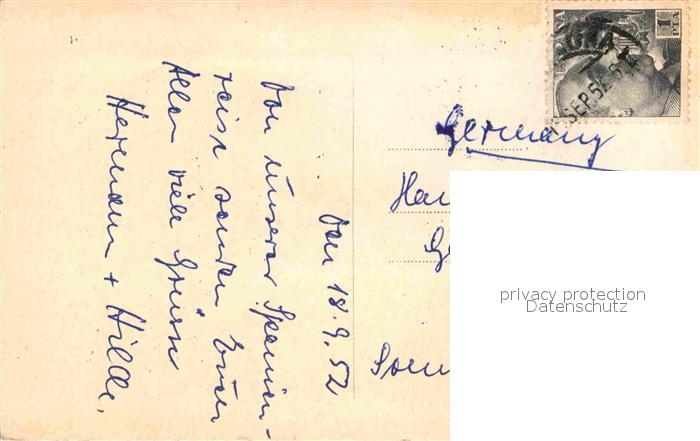 Den 18.9.52
Von unserer Spanien-
reise senden Euch
Allen viele Grüsse
Hermann + Hilde.
Germany
1
PTA
SEP.52
privacy protection
Datenschutz